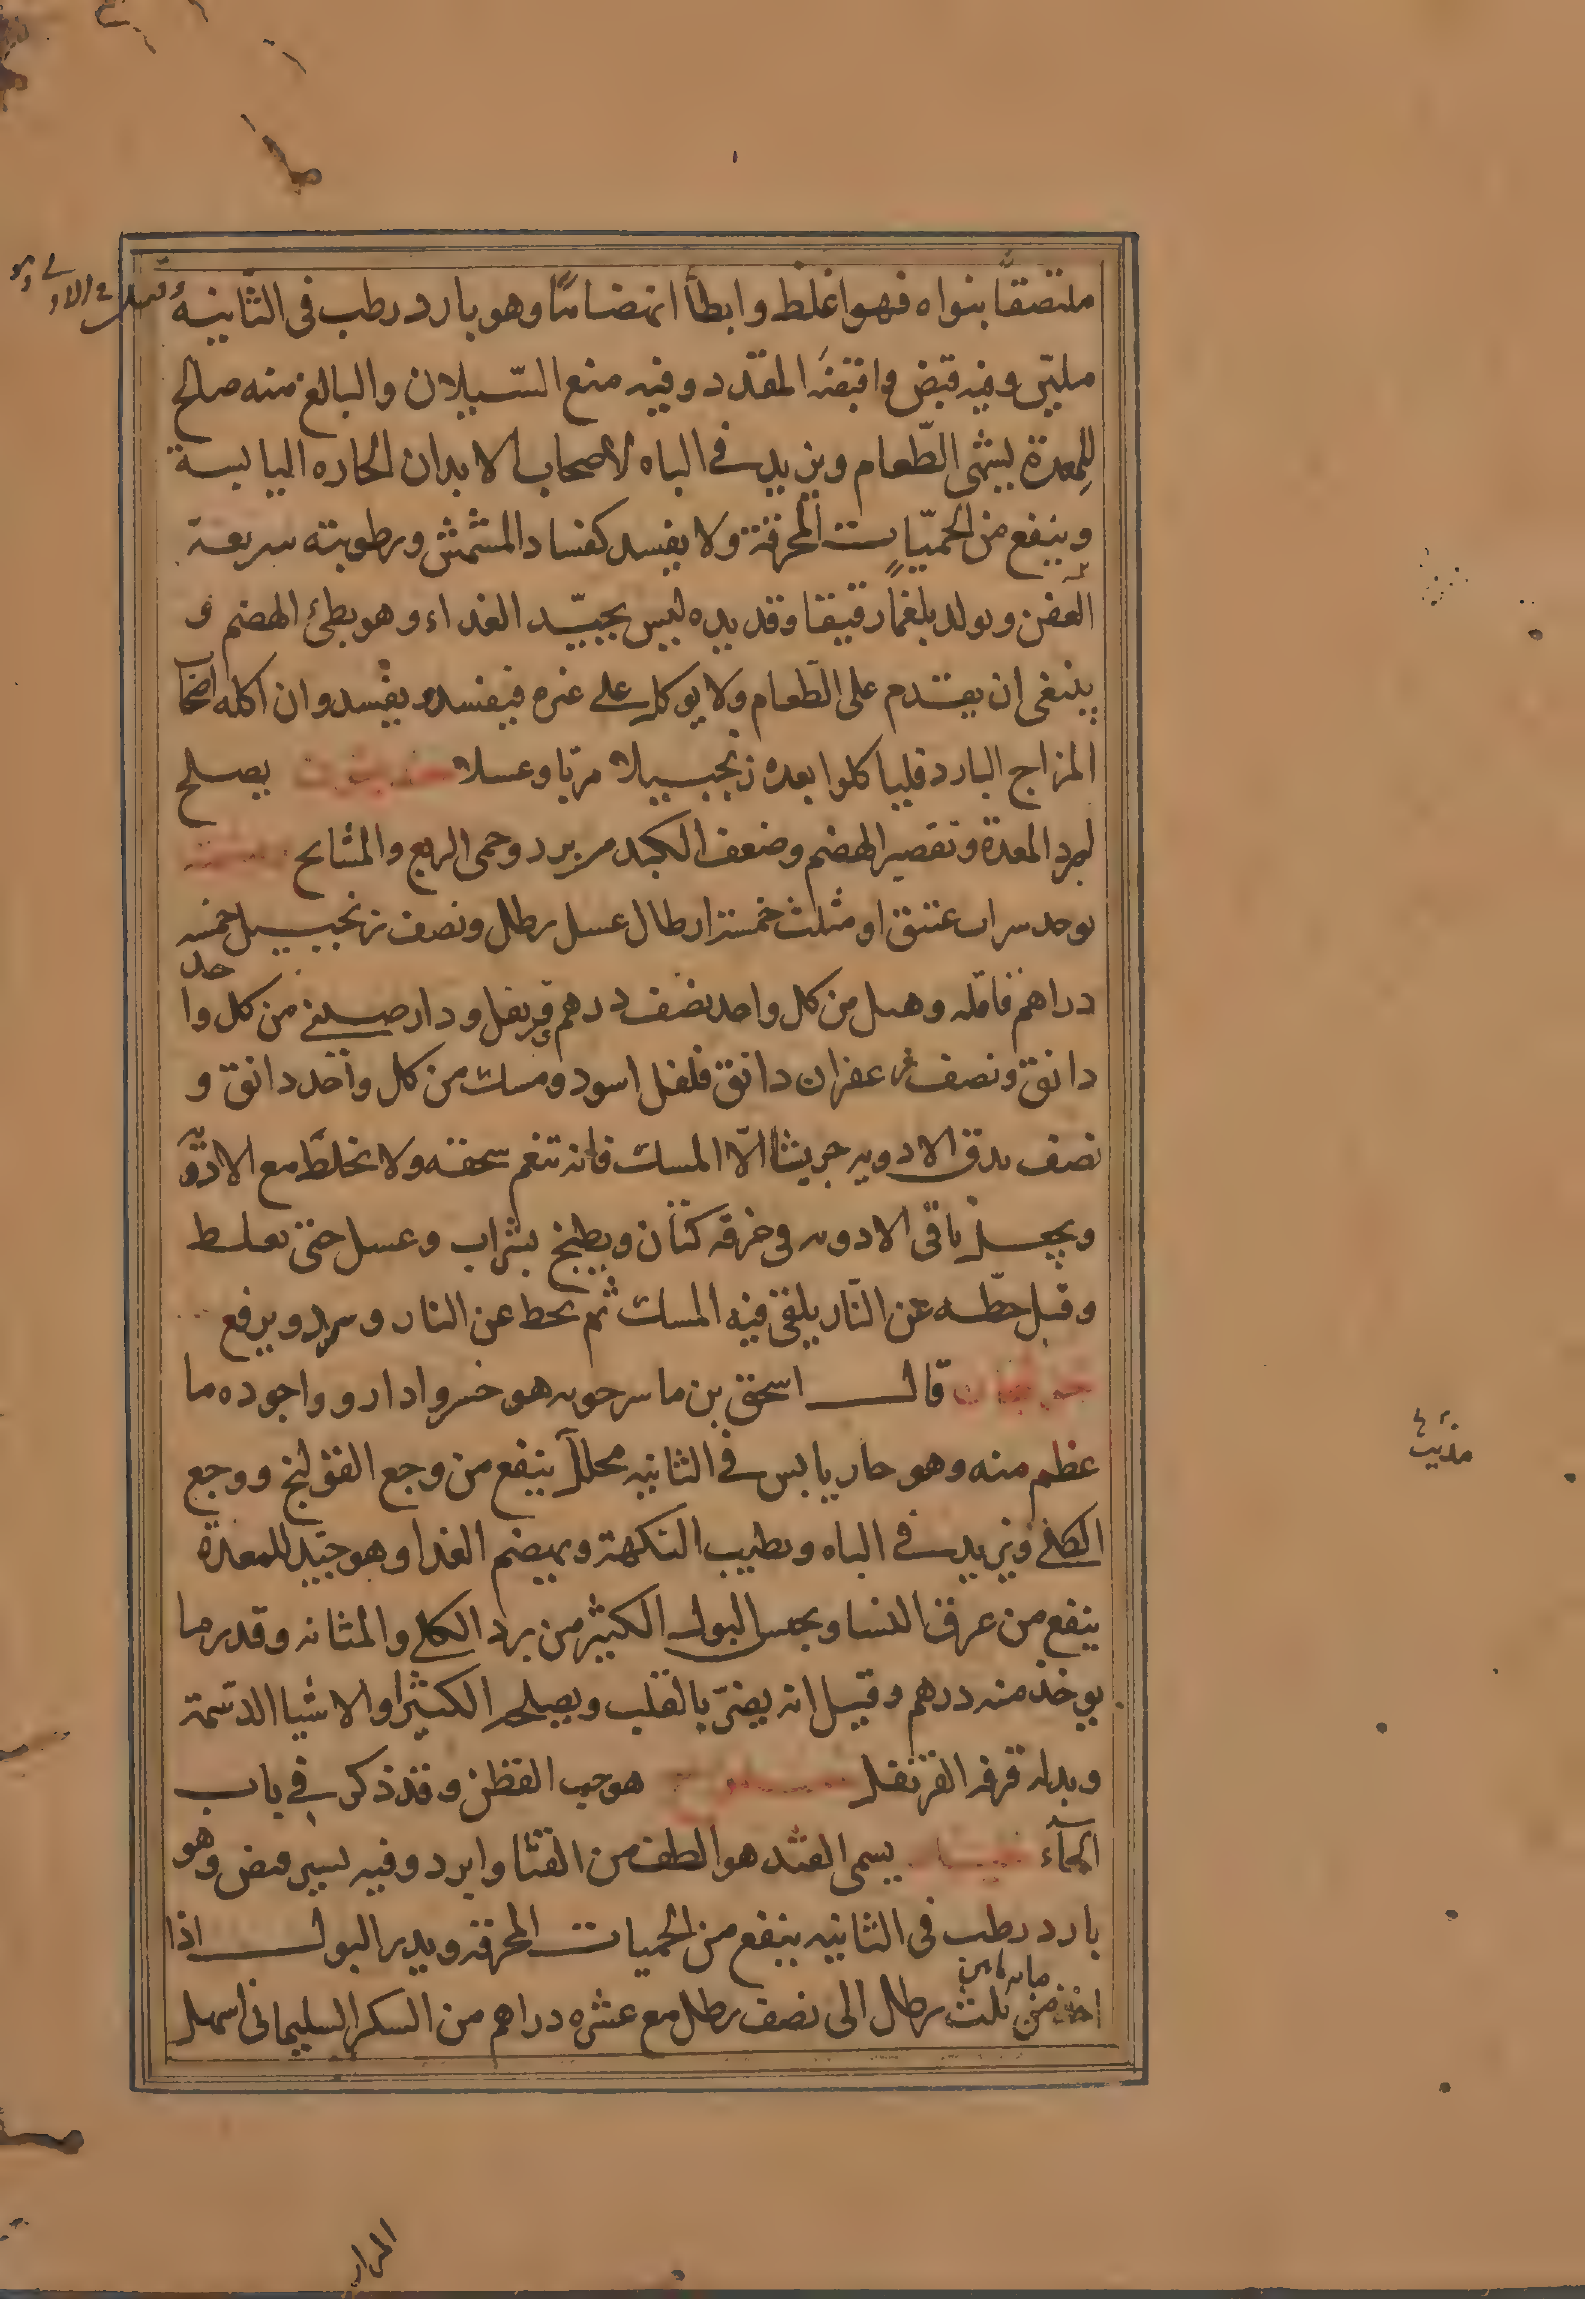 ملتصقًا بنواه فهو اغلظ وابطأ انهضامًا وهو بارد رطب فى الثّانيه
مليّن وفيه قبض واقبضه المقدد وفيه منع السّيلان والبالغ منه صالح
للمعدة يشهى الطّعام ويزيد فى الباه لأصحاب الابدان الحاره اليابسة
وينفع من الحميّات المحرقة ولا يفسد كفساد المشمش ورطوبته سريعة
العفن ويولد بلغمًا رقيقا وقديده ليس بجيّد الغداء وهو بطئ الهضم و
ينبغى ان يقدم على الطّعام ولا يوكل على غيره فيفسده يفسد وان اكله اصحاب
المزاج البارد فلياكلوا بعده زنجبيلا مربّا وعسلا يصلح
لبرد المعدة وتقصير الهضم وضعف الكبد من برد وحمى الربع والمشايخ
يوخد سراب عتيق او مثلث خمسة ارطال عسل رطل ونصف زنجبيل خمسه
دراهم قاقله وهيل من كل واحد نصف درهم قرنفل ودارصينى من كل واحد
دانق ونصف زعفران دانق فلفل اسود ومسك من كل واحد دانق و
نصف يدق الادويه جريشا الّا المسك فانه تنعم سحقه ولا يخلط مع الادويه
ويجعل باقى الادويه فى خرقه كتّان ويطبخ بشراب وعسل حتى يغلظ
وقبل حطّه عن النّار يلقى فيه المسك ثم يحط عن النار ويبرد ويرفع
قال اسحق بن ماسرجويه هو خسروادارو واجوده ما
عظم منه وهو حار يابس فى الثانيه محلل ينفع من وجع القولنج ووجع
الكلى ويزيد فى الباه ويطيب النكهة ويهضم الغدا وهو جيّد للمعدة
ينفع من عرق النسا ويحبس البول الكثير من برد الكلى والمثانه وقدر ما
يوخذ منه درهم وقيل انه يضرّ بالقلب ويصلحه الكثيرا والاشيا الدسمة
وبدله قرفه القرنفل هو حب القطن وقد ذكر فى باب
الحآء يسمى القثد هو الطف من القثا وابرد وفيه يسير قبض وهو
بارد رطب فى الثانيه ينفع من الحميات المحرقه ويدر البول اذا
اخذ من مايه مابين ثلث رطل الى نصف رطل مع عشره دراهم من السكر السليمانى اسهل
المرار